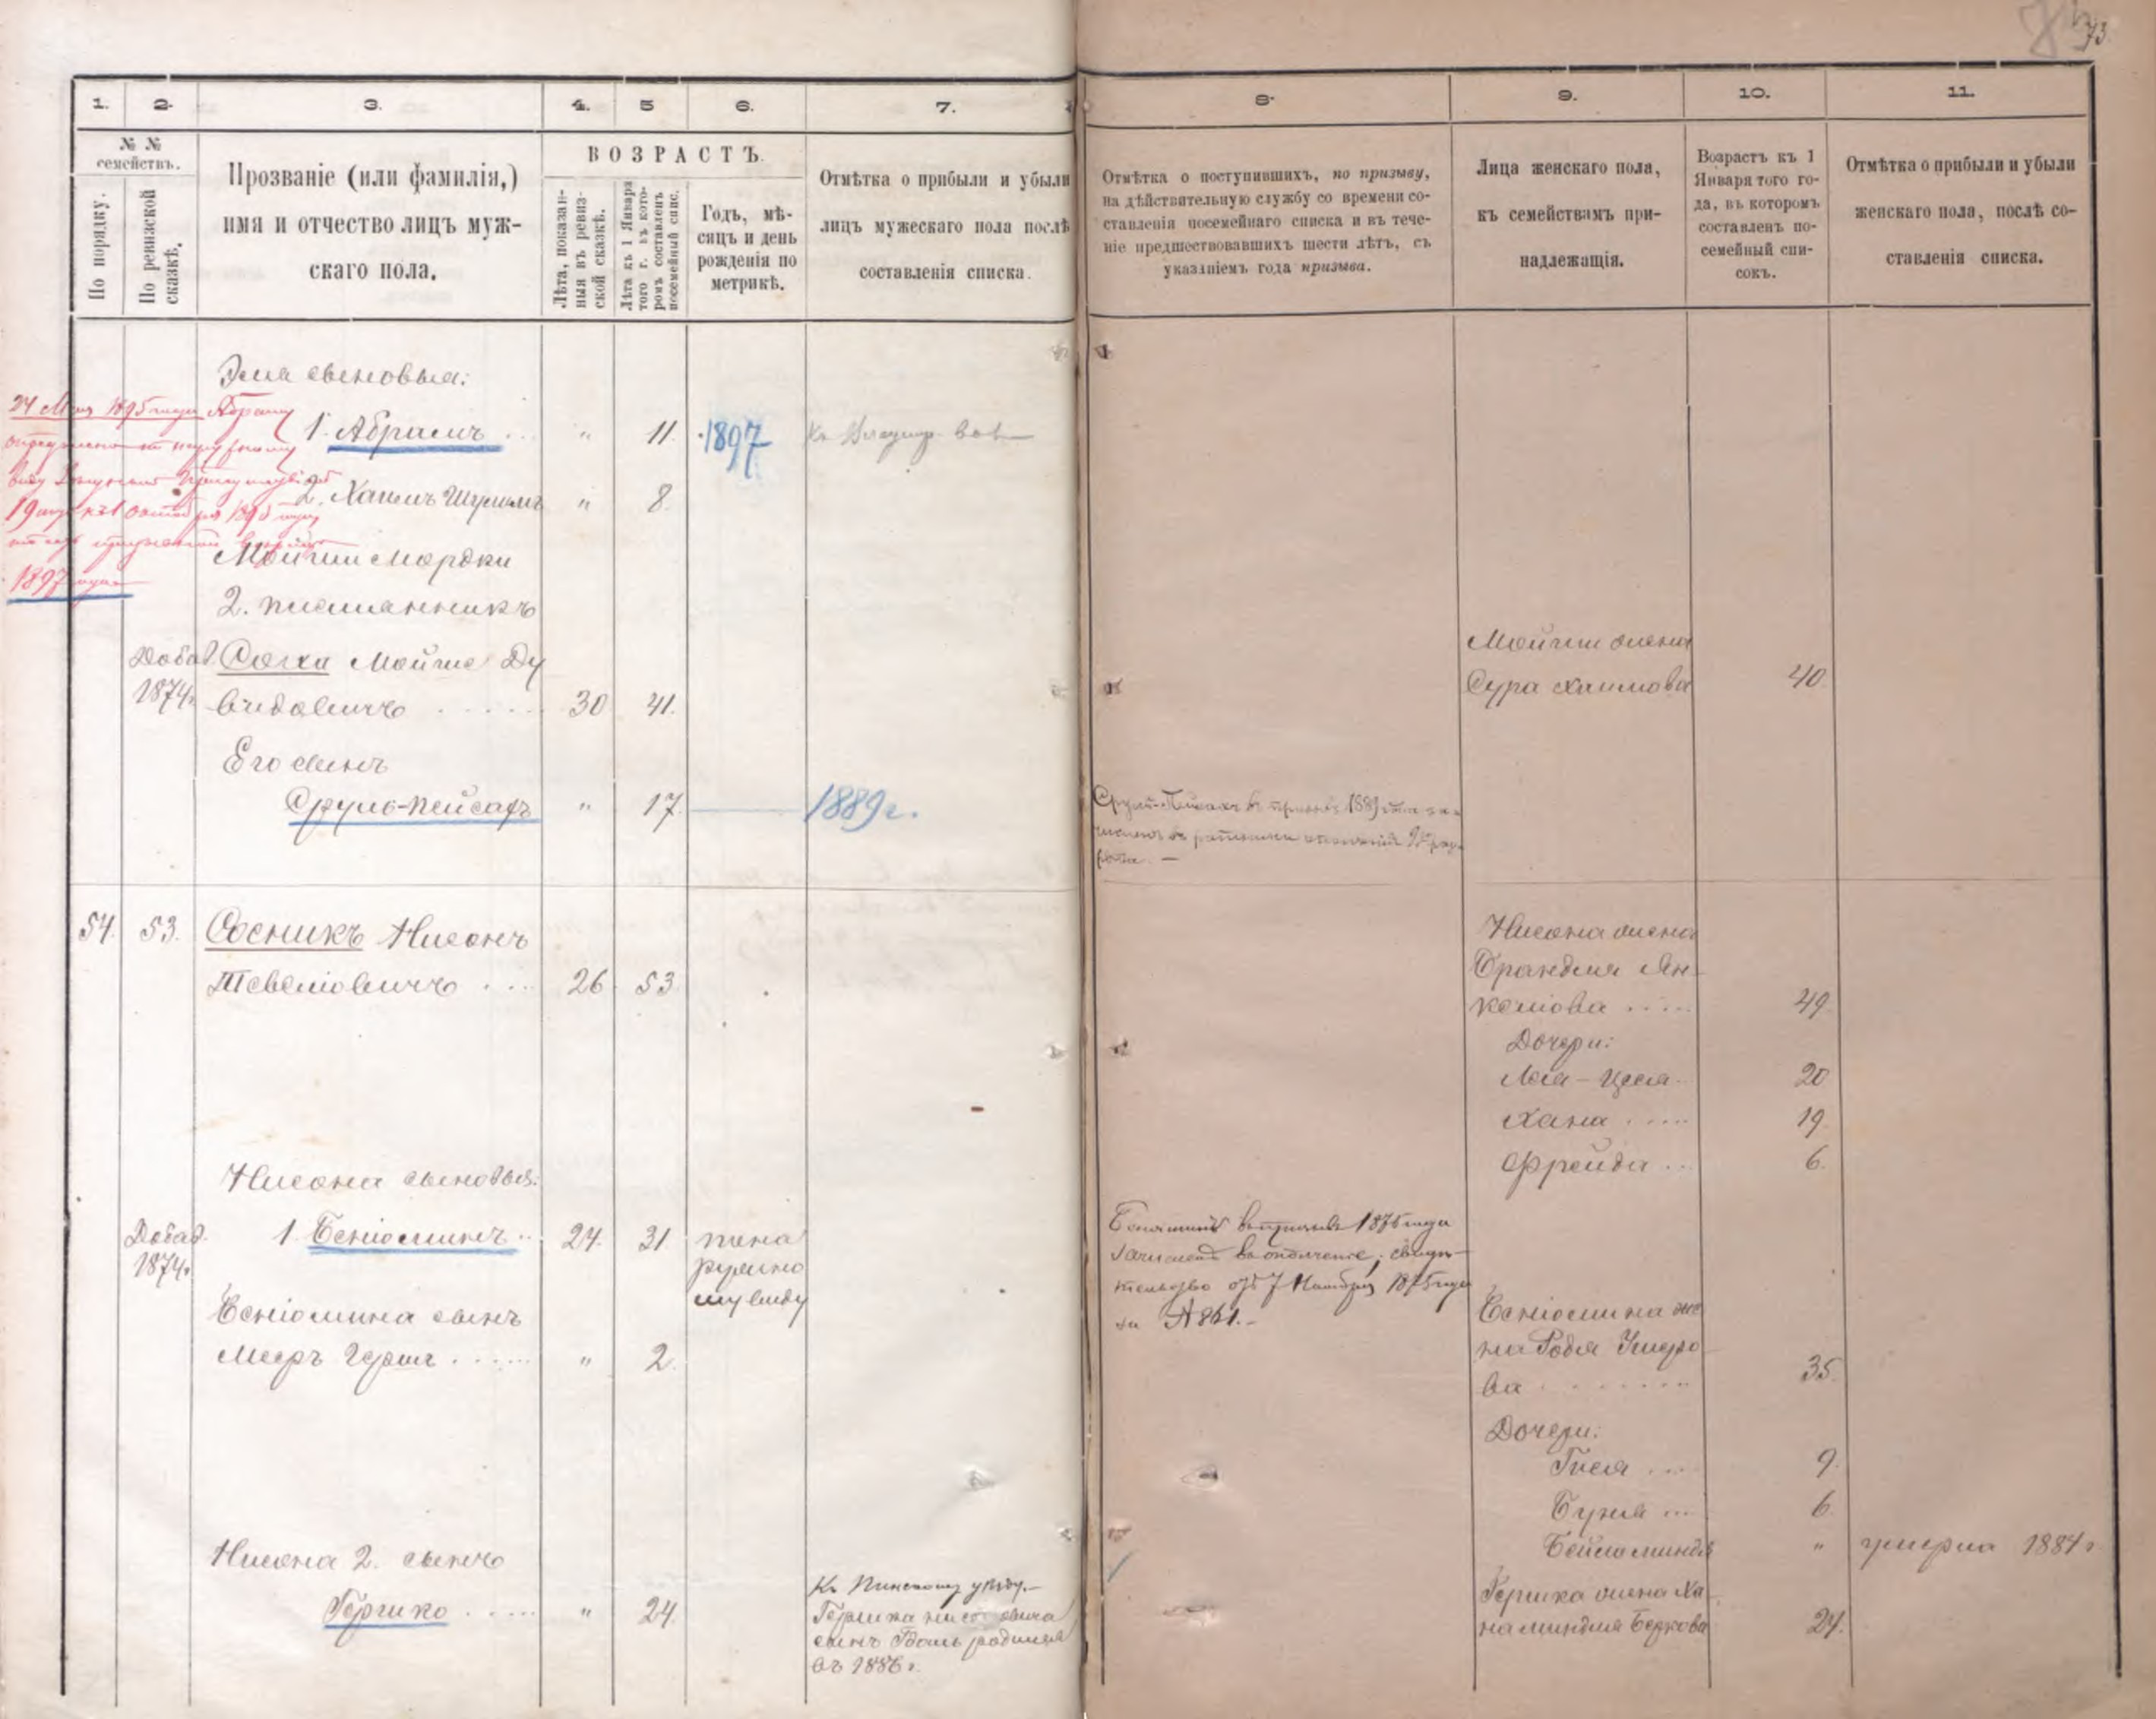 73.
1. 2. 3. 4. 5 6. 7. 8. 9. 10. 11.
№ №
семействъ.
По порядку.
По ревизской
сказкѣ.
Прозваніе (или фамилія,)
имя и отчество лицъ муж-
скаго пола.
ВОЗРАСТЪ.
Лѣта, показан-
ныя въ ревиз-
ской сказкѣ.
Лѣта къ 1 Января
того г. въ кото-
ромъ составленъ
посемейный спис.
Годъ, мѣ-
сяцъ и день
рожденія по
метрикѣ.
Отмѣтка о прибыли и убыли
лицъ мужескаго пола послѣ
составленія списка.
Отмѣтка о поступившихъ, по призыву,
на дѣйствительную службу со времени со-
ставленія посемейнаго списка и въ тече-
ніе предшествовавшихъ шести лѣтъ, съ
указаніемъ года призыва.
Лица женскаго пола,
къ семействамъ при-
надлежащія.
Возрастъ къ 1
Января того го-
да, въ которомъ
составленъ по-
семейный спи-
сокъ.
Отмѣтка о прибыли и убыли
женскаго пола, послѣ со-
ставленія списка.
сыновья:
1. Абрамъ " 11. 1897
24 1895 года Абраму
2. Хаимъ " 8.
19 1895
1897 года
Мойши Мордки
2. племянникъ
Добав. Соска Мойше До
1874. видовичъ 30 41.
Мойши жена
Сура Хаимова 40.
Его сынъ
Сруль-Пейсахъ " 17. 1889 г.
Сруль-Пейсахъ въ призывъ 1889
ратники ополченія 2
54. 53. Сосникъ Нисонъ
Тевелiовичъ 26 53.
Нисона жена
Брандля Ян-
келiова 49.
Дочери:
Леа - Цеся 20
Хана 19.
Фрейда 6.
Нисона сыновья:
Добав. 1. Бенiоминъ 24. 31
1874.
Бенiоминъ въ призывъ 1875 года
зачисленъ въ ополченіе, свидѣ-
тельство отъ 7 Ноября 1875 года
за № 861.
Бенiомина сынъ
Мееръ Герш " 2.
Бенiомина же-
на Робля
ва 35.
Дочери:
Гися 9.
Буня 6
Бейломиндля " умерла 1884 г.
Нисона 2. сынъ
Гершко " 24.
Къ Пинскому уѣзду.
Гершка
сынъ родился
въ 1886 г.
Гершка жена Ха-
наминдля Беркова 24.